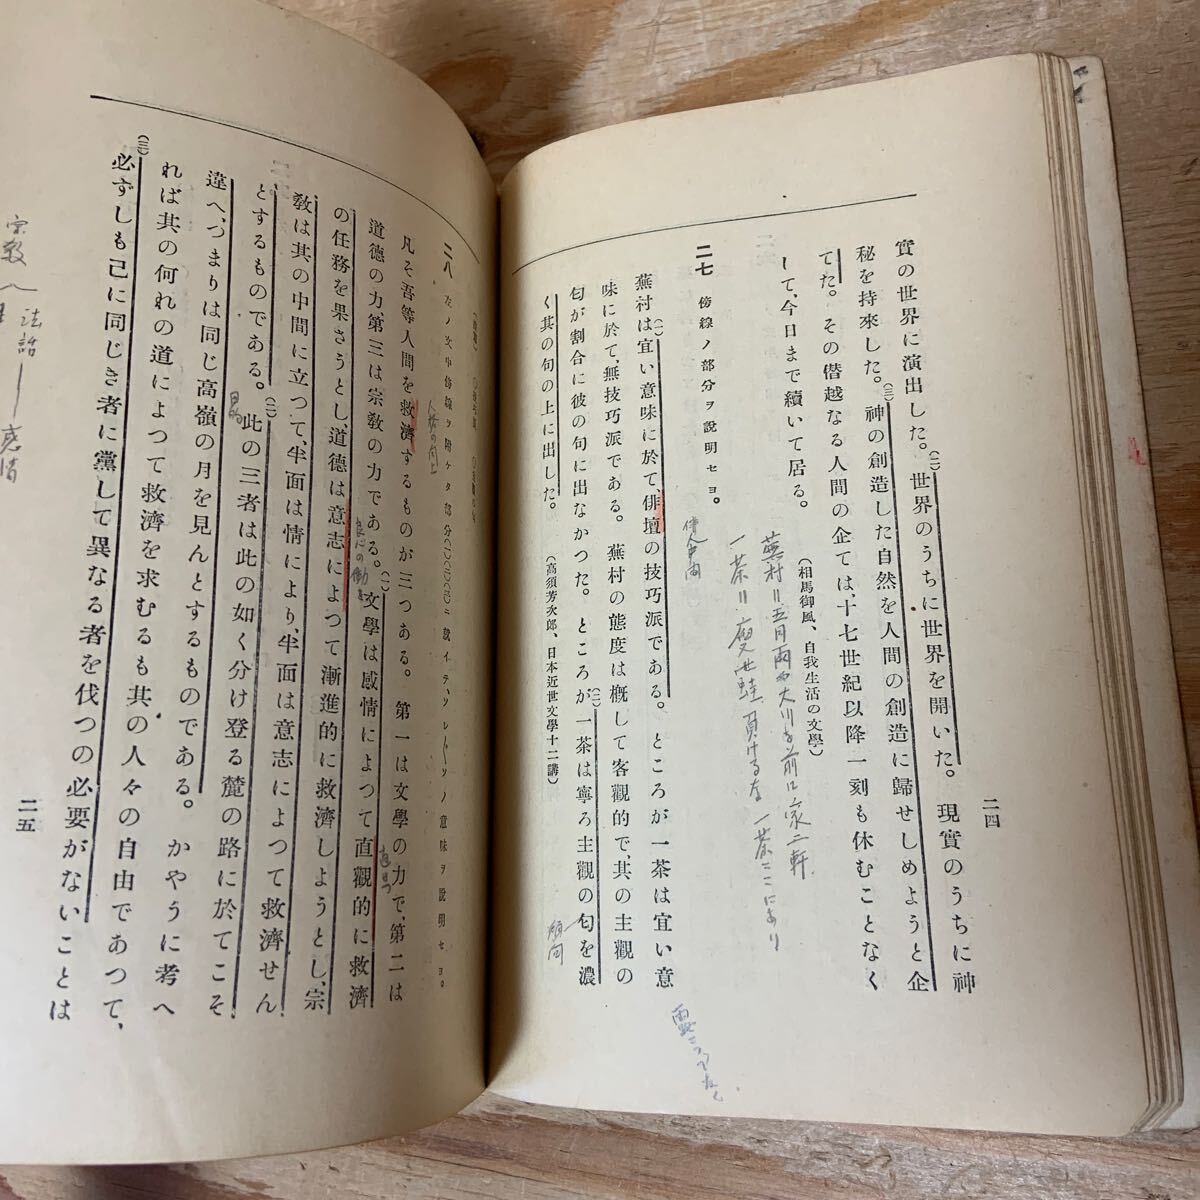 二四
實の世界に演出した。(二)世界のうちに世界を開いた。現實のうちに神
秘を持來した。(三)神の創造した自然を人間の創造に歸せしめようと企
てた。その僭越なる人間の企ては、十七世紀以降一刻も休むことなく
して、今日まで續いて居る。
(相馬御風、自我生活の文學)
蕪村ハ五月雨や大川を前に家二軒
一茶ハ瘦せ蛙負けるな一茶ここにあり
二七 傍線ノ部分ヲ説明セヨ。
俳人中間
蕪村は(一)宜い意味に於て、俳壇の技巧派である。ところが一茶は宜い意
味に於て、無技巧派である。蕪村の態度は概して客觀的で、其の主觀の
匂が割合に彼の句に出なかつた。ところが(二)一茶は寧ろ主觀の匂を濃
く其の句の上に出した。
(高須芳次郎、日本近世文學十二講)
二八 左ノ文中傍線ヲ附ケタ部分(一)(二)(三)ニ就イテ、ソレ〴〵ノ意味ヲ説明セヨ。
人格の向上
凡そ吾等人間を救濟するものが三つある。第一は文學の力で、第二は
道德の力、第三は宗敎の力である。(一)文學は感情によつて直觀的に救濟
良心の働き
の任務を果さうとし、道德は意志によつて漸進的に救濟しようとし、宗
敎は其の中間に立つて、半面は情により、半面は意志によつて救濟せん
とするものである。(二)此の三者は此の如く分け登る麓の路に於てこそ
違へ、つまりは同じ高嶺の月を見んとするものである。かやうに考へ
れば其の何れの道によつて救濟を求むるも其の人々の自由であつて、
(三)必ずしも己に同じき者に黨して異なる者を伐つの必要がないことは
二五
宗敎へ
法話
感情